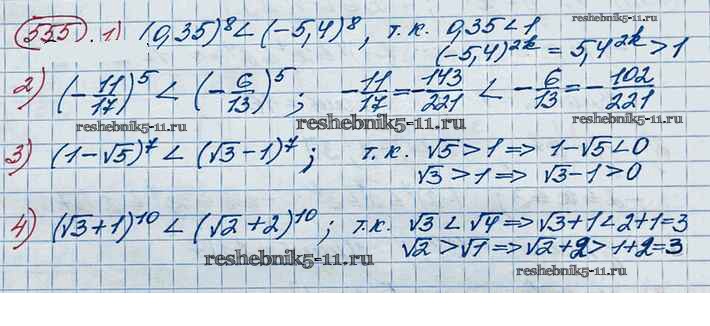 555. 1) (0,35)⁸ < (-5,4)⁸, т.к. 0,35 < 1
(-5,4)²ᵏ = 5,4²ᵏ > 1
reshebnik5-11.ru
2) (-11/17)⁵ < (-6/13)⁵; -11/17 = -143/221 < -6/13 = -102/221
reshebnik5-11.ru
reshebnik5-11.ru
reshebnik5-11.ru
3) (1-√5)⁷ < (√3-1)⁷; т.к. √5 > 1 => 1-√5 < 0
√3 > 1 => √3-1 > 0
4) (√3+1)¹⁰ < (√2+2)¹⁰; т.к. √3 < √4 => √3+1 < 2+1=3
√2 > √1 => √2+2 > 1+2=3
reshebnik5-11.ru
reshebnik5-11.ru